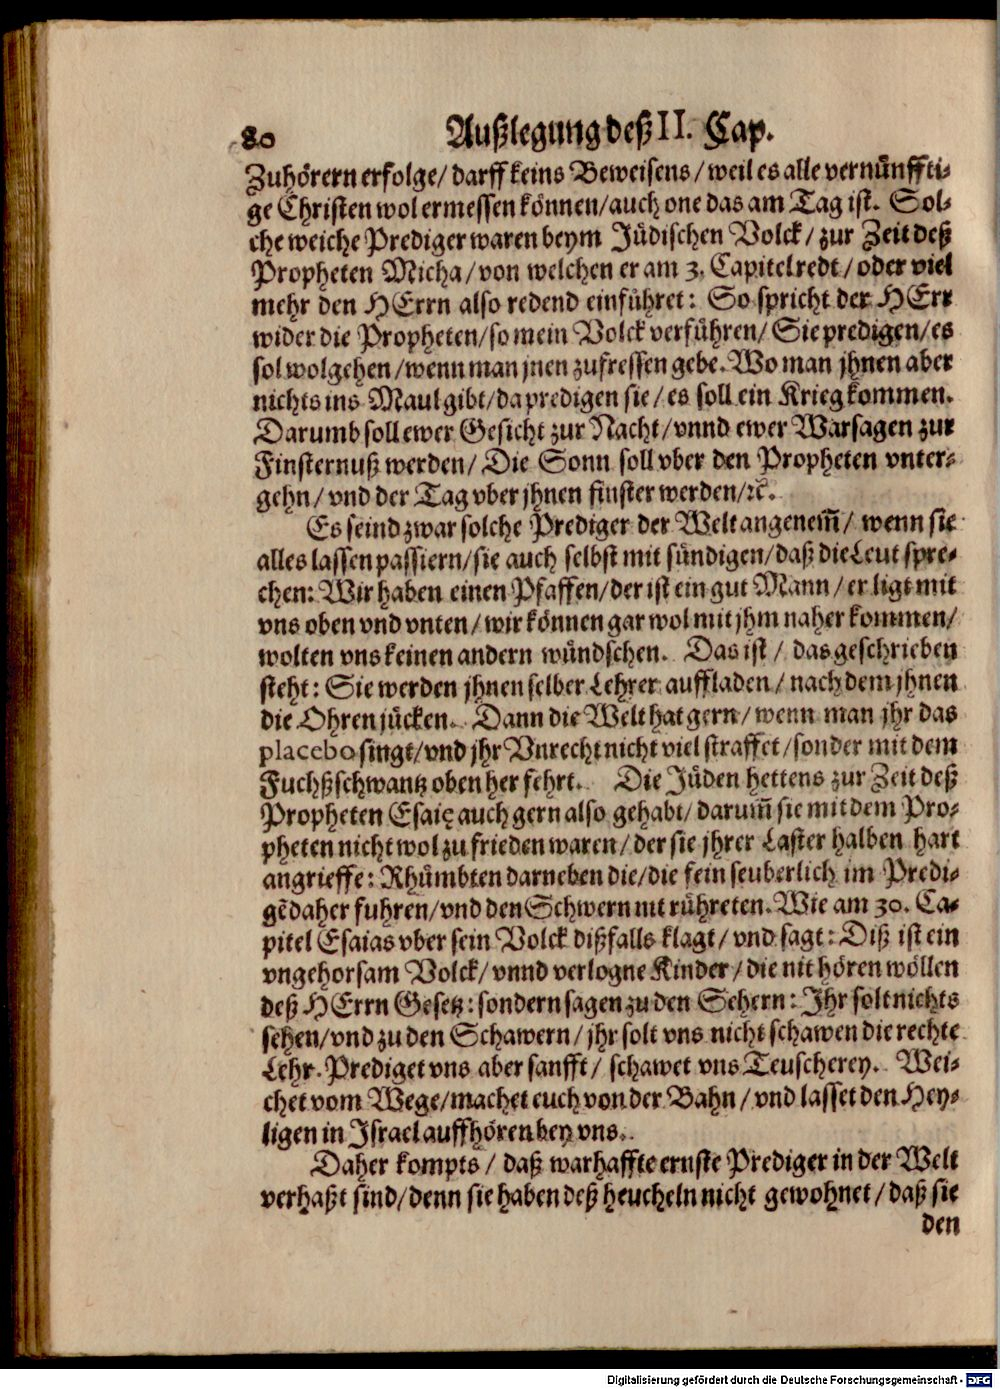 80 Außlegung deß II. Cap.
Zuhörern erfolge/ darff keins Beweisens/ weil es alle vernünffti-
ge Christen wol ermessen können/ auch one das am Tag ist. Sol-
che weiche Prediger waren beym Jüdischen Volck/ zur Zeit deß
Propheten Micha/ von welchen er am 3. Capitel redt/ oder viel
mehr den HErrn also redend einführet: So spricht der HErr
wider die Propheten/ so mein Volck verführen/ Sie predigen/ es
sol wolgehen/ wenn man jnen zufressen gebe. Wo man jhnen aber
nichts ins Maul gibt/ da predigen sie/ es soll ein Krieg kommen.
Darumb soll ewer Gesicht zur Nacht/ vnnd ewer Warsagen zur
Finsternuß werden/ Die Sonn soll vber den Propheten vnter-
gehn/ vnd der Tag vber jhnen finster werden/ ꝛc̃.
Es seind zwar solche Prediger der Welt angenem̃/ wenn sie
alles lassen passiern/ sie auch selbst mit sündigen/ daß die Leut spre-
chen: Wir haben einen Pfaffen/ der ist ein gut Mann/ er ligt mit
vns oben vnd vnten/ wir können gar wol mit jhm naher kommen/
wolten vns keinen andern wündschen. Das ist/ das geschrieben
steht: Sie werden jhnen selber Lehrer auffladen/ nach dem jhnen
die Ohren jücken. Dann die Welt hat gern/ wenn man jhr das
placebo singt/ vnd jhr Vnrecht nicht viel straffet/ sonder mit dem
Fuchßschwantz oben her fehrt. Die Jüden hettens zur Zeit deß
Propheten Esaię auch gern also gehabt/ darum̃ sie mit dem Pro-
pheten nicht wol zu frieden waren/ der sie jhrer Laster halben hart
angrieffe: Rhümbten darneben die/ die fein seuberlich im Predi-
gẽ daher fuhren/ vnd den Schwern nit rühreten. Wie am 30. Ca-
pitel Esaias vber sein Volck dißfalls klagt/ vnd sagt: Diß ist ein
vngehorsam Volck/ vnnd verlogne Kinder/ die nit hören wöllen
deß HErrn Gesetz: sondern sagen zu den Sehern: Jhr solt nichts
sehen/ vnd zu den Schawern/ jhr solt vns nicht schawen die rechte
Lehr. Prediget vns aber sanfft/ schawet vns Teuscherey. Wei-
chet vom Wege/ machet euch von der Bahn/ vnd lasset den Hey-
ligen in Israel auffhören bey vns.
Daher kompts/ daß warhaffte ernste Prediger in der Welt
verhaßt sind/ denn sie haben deß heucheln nicht gewohnet/ daß sie
den
Digitalisierung gefördert durch die Deutsche Forschungsgemeinschaft - DFG